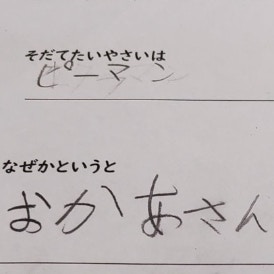 そだてたいやさいは
ピーマン
なぜかというと
おかあさん